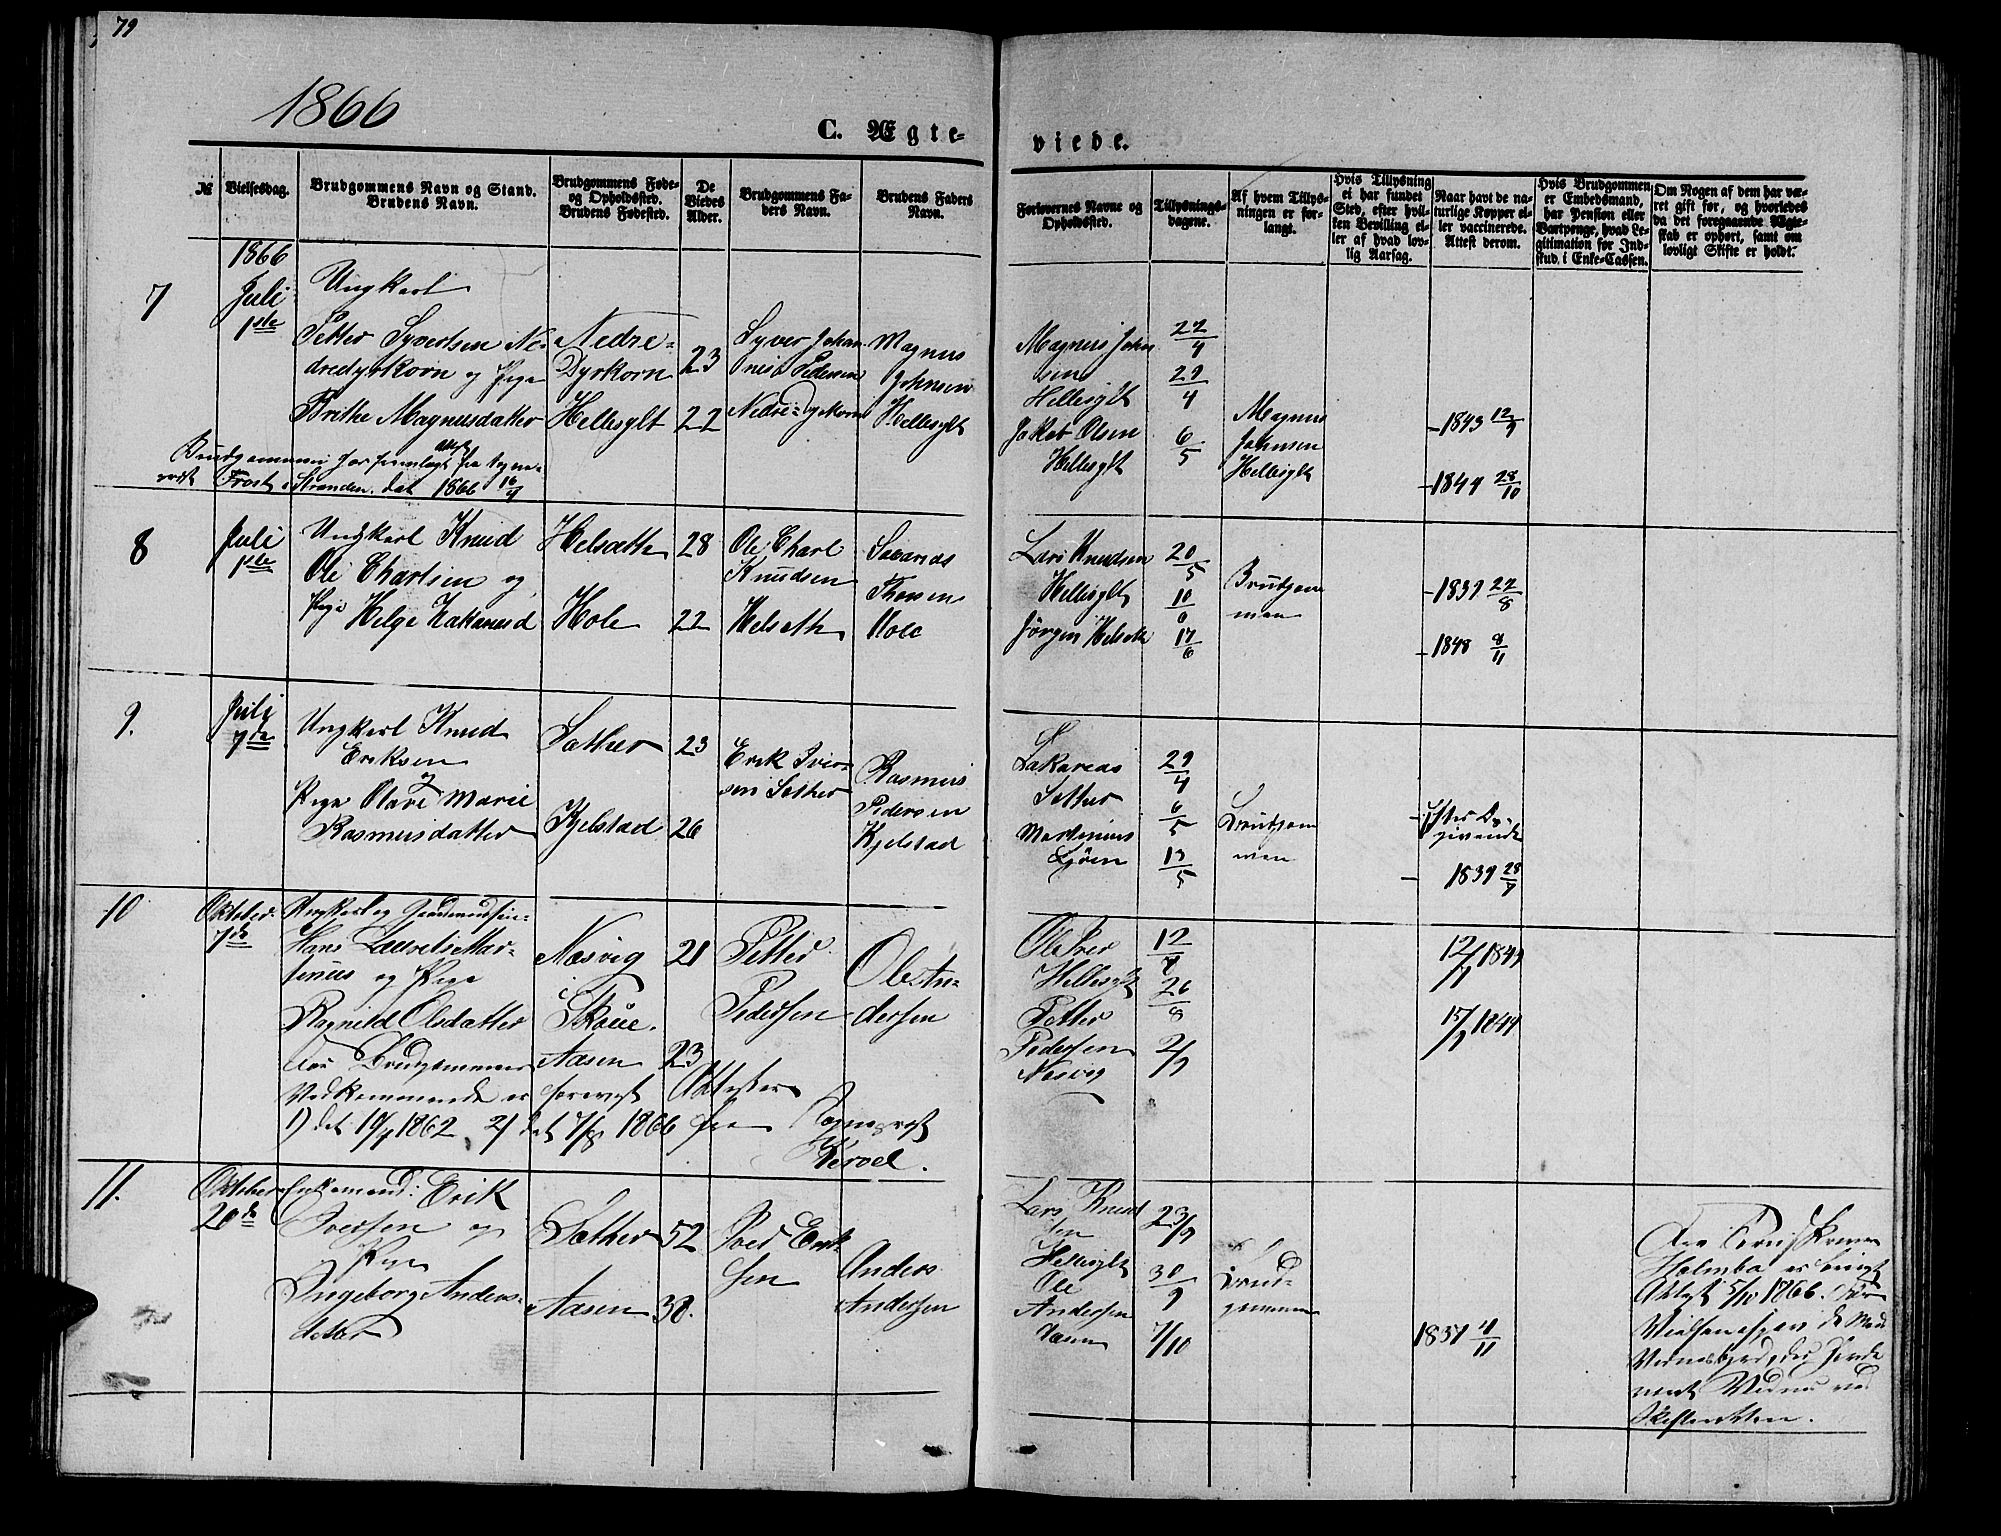 79
1866
C. Ægte-
viede.
№
Vielsesdag.
Brudgommens Navn og Stand.
Brudens Navn.
Brudgommens Føde-
og Opholdssted.
Brudens Fødested.
De
Viedes
Alder.
Brudgommens Fa-
ders Navn.
Brudens Faders
Navn.
Forlovernes Navne og
Opholdssted.
Tillysnings-
dagene.
Af hvem Tillys-
ningen er for-
langt.
Hvis Tillysning
ei har fundet
Sted, efter hvil-
ken Bevilling el-
ler af hvad lov-
lig Aarsag.
Naar havt de na-
turlige Kopper el-
ler vaccinerede.
Attest derom.
Hvis Brudgommen
er Embedsmand,
har Pension eller
Vartpenge, hvad Le-
gitimation for Ind-
skud i Enke-Cassen.
Om Nogen af dem har væ-
ret gift før, og hvorledes
da det foregaaende Ægte-
skab er ophørt, samt om
lovligt Skifte er holdt.
7
1866
Juli
1ste
Ungkarl
Petter Syvertsen Ne-
dredyrkorn og Pige
Brithe Magnusdatter
Nedre-
Dyrkorn
Hellesylt
23
22
Syver Johan-
nes Pedersen
Nedre-Dyrkorn
Magnus
Johnsen
Hellesylt
Magnus John
sen
Hellesylt
Jakob Olsen
Hellesylt
22/4
29/4
6/5
Magnus
Johnsen
Hellesylt
1843 12/9
1844 28/10
Brudgommen har fremlagt Attest fra Sogne-
præst Frost i Stranden. dat 1866 16/4
8
Juli
1ste
Ungkarl Knud
Ole Charlsen og
Pige Helge Zakariasd
Helsæth
Hole
28
22
Ole Charl
Knudsen
Helseth
Thoresen
Hole
Lars Knudsen
Hellesylt
Jørgen Helseth
20/5
10/6
17/6
Brudgom
men
1839 22/8
1848 8/11
9.
Juli
7de
Ungkarl Knud
Eriksen
og
Pige Olave Marie
Rasmusdatter
Sæther
Kjelstad
23
26
Erik Iver-
sen Sæther
Rasmus
Pedersen
Kjelstad
Zakarias
Sæther
Martinius
29/4
6/5
13/5
Brudgom
men
Efter Op-
givende
1839 28/9
10
Oktober
7de
Ungkarl og Gaardmandssøn
Hans Lauretis Mar-
tinus og Pige
Ragnild Olsdatter
Næsvig
Skoue.
Aasen
21
23
Petter
Pedersen
Ole An-
dersen
Ole Iver
Hellesylt
Petter
Pedersen
Næsvig
12/8
26/8
2/9
12/9 1849
15/9 1844
For Brudgommens
Vedkommende er forevist Attester
1) det 19/9 1862, 2) det 7/8 1866 fra Sognepræst
11.
Oktober
20de
Enkemand: Erik
Iversen og
Pige
Ingeborg Anders-
datter
Sæther
Aasen
52
30.
Iver Erik-
sen
Anders
Andersen
Lars Knud
sen
Hellesylt
Ole
Andersen
Aasen
23/9
30/9
7/10
Brud-
gommen
1837 4/11
Fra Sorenskriver
Holmboe er bevist
Attest 5/10 1866. for